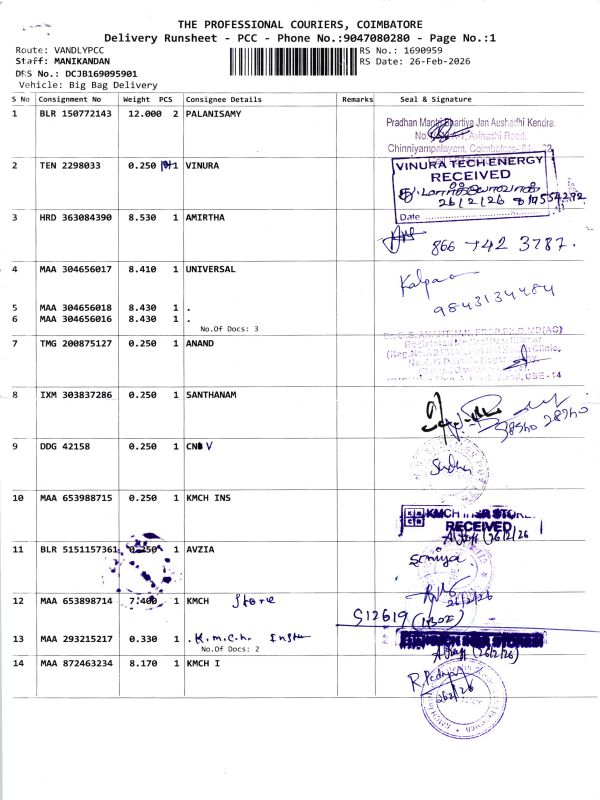 THE PROFESSIONAL COURIERS, COIMBATORE
Delivery Runsheet - PCC - Phone No.:9047080280 - Page No.:1
Route: VANDLYPCC RS No.: 1690959
Staff: MANIKANDAN RS Date: 26-Feb-2026
DRS No.: DCJB169095901
Vehicle: Big Bag Delivery
S No Consignment No Weight PCS Consignee Details Remarks Seal & Signature
1 BLR 150772143 12.000 2 PALANISAMY
Pradhan Mantri Bhartiya Jan Aushadhi Kendra
Avinashi Road,
Chinniyampalayam, Coimbatore
2 TEN 2298033 0.250 1 VINURA
VINURA TECH ENERGY
RECEIVED
26/2/26
Date
3 HRD 363084390 8.530 1 AMIRTHA
866 7423787.
4 MAA 304656017 8.410 1 UNIVERSAL
Kalpana
9843134484
5 MAA 304656018 8.430 1 .
6 MAA 304656016 8.430 1 .
No.Of Docs: 3
7 TMG 200875127 0.250 1 ANAND
CBE - 14
8 IXM 303837286 0.250 1 SANTHANAM
9 DDG 42158 0.250 1 CNBV
Sudha
10 MAA 653988715 0.250 1 KMCH INS
KMCH STORE
RECEIVED
26/2/26
11 BLR 5151157361 0.250 1 AVZIA
Soniya
12 MAA 653898714 7.400 1 KMCH Store
26/2/26
S12619 (1BOX)
13 MAA 293215217 0.330 1 . K.m.c.h. Inste
No.Of Docs: 2
(26/2/26)
14 MAA 872463234 8.170 1 KMCH I
R.Padma
26/2/26